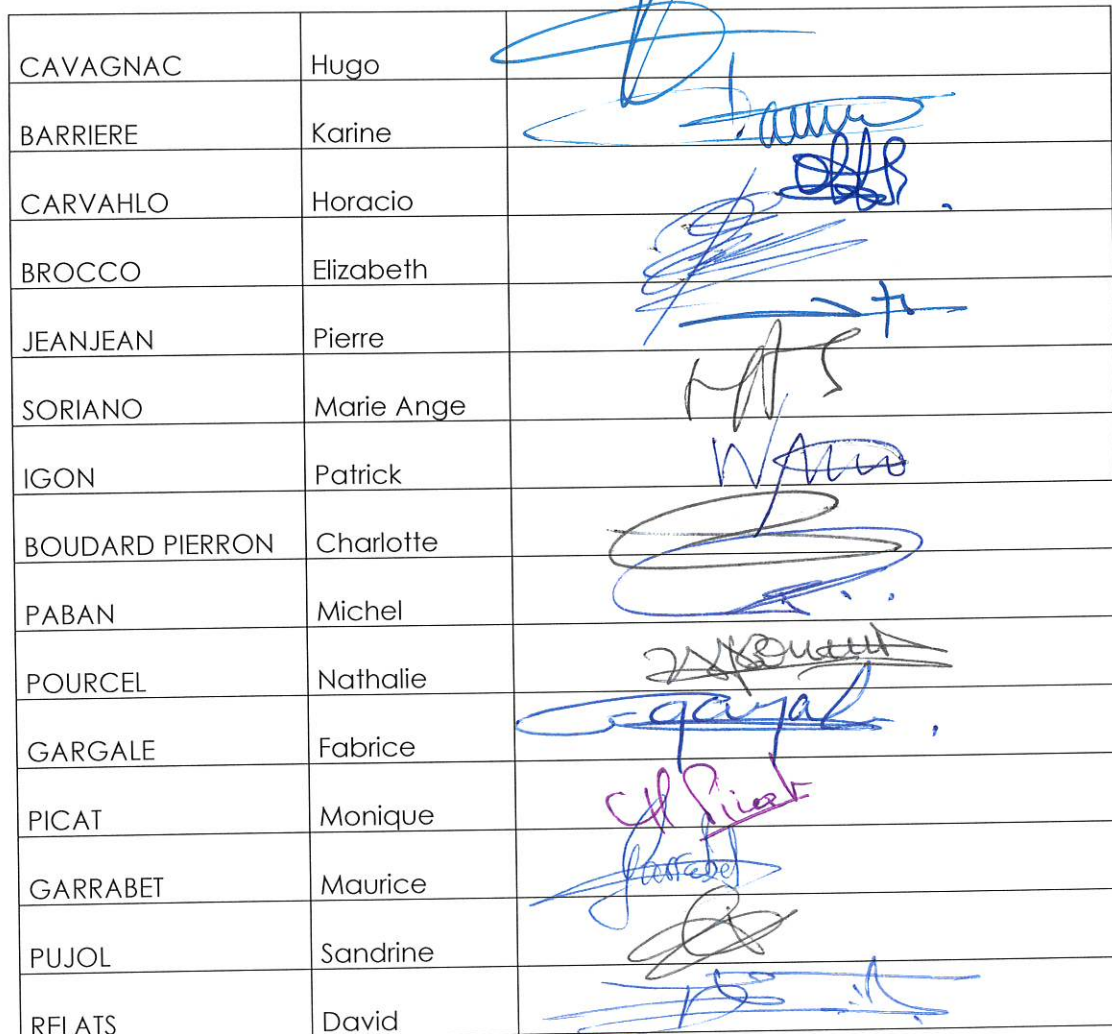 CAVAGNAC Hugo
BARRIERE Karine
CARVAHLO Horacio
BROCCO Elizabeth
JEANJEAN Pierre
SORIANO Marie Ange
IGON Patrick
BOUDARD PIERRON Charlotte
PABAN Michel
POURCEL Nathalie
GARGALE Fabrice
PICAT Monique
GARRABET Maurice
PUJOL Sandrine
RELATS David